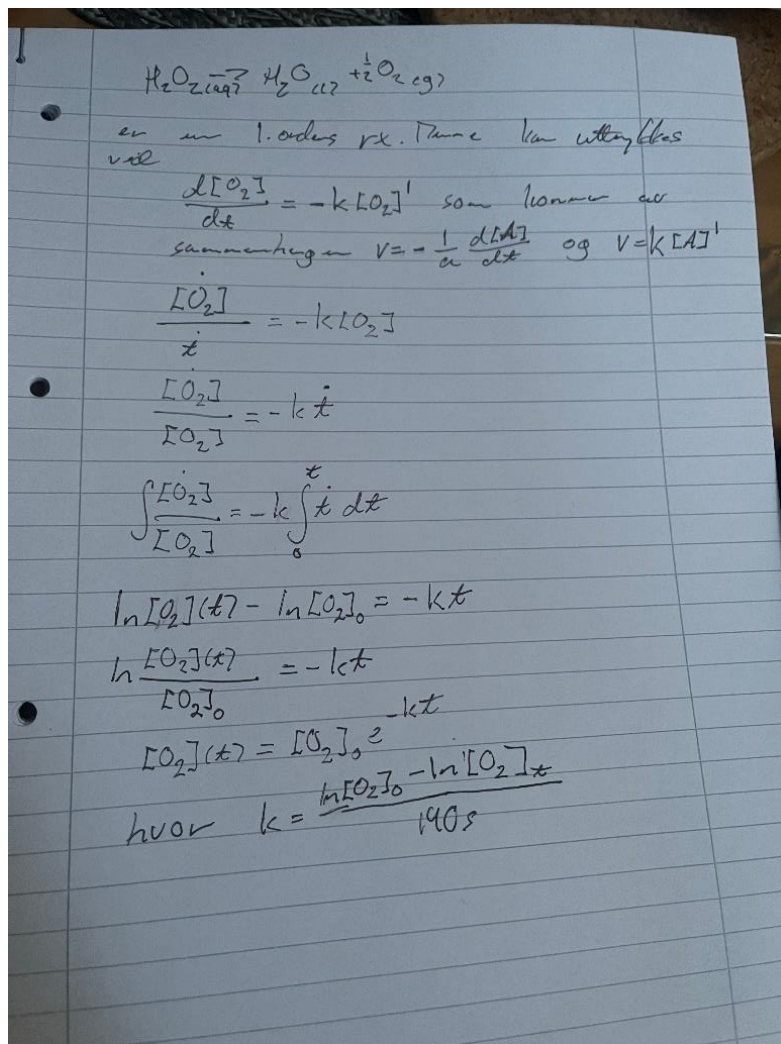 H₂O₂(aq) → H₂O(l) + ½O₂(g)
er en 1. ordens rx. Denne kan uttrykkes
ved
d[O₂]/dt = -k[O₂]¹ som kommer av
sammenhengen v = -1/a d[A]/dt og v = k[A]¹
[Ȯ₂]/ṫ = -k[O₂]
[Ȯ₂]/[O₂] = -kṫ
∫[Ȯ₂]/[O₂] = -k ∫₀ᵗ ṫ dt
ln[O₂](t) - ln[O₂]₀ = -kt
ln [O₂](t)/[O₂]₀ = -kt
[O₂](t) = [O₂]₀ e^-kt
hvor k = (ln[O₂]₀ - ln[O₂]t)/190s